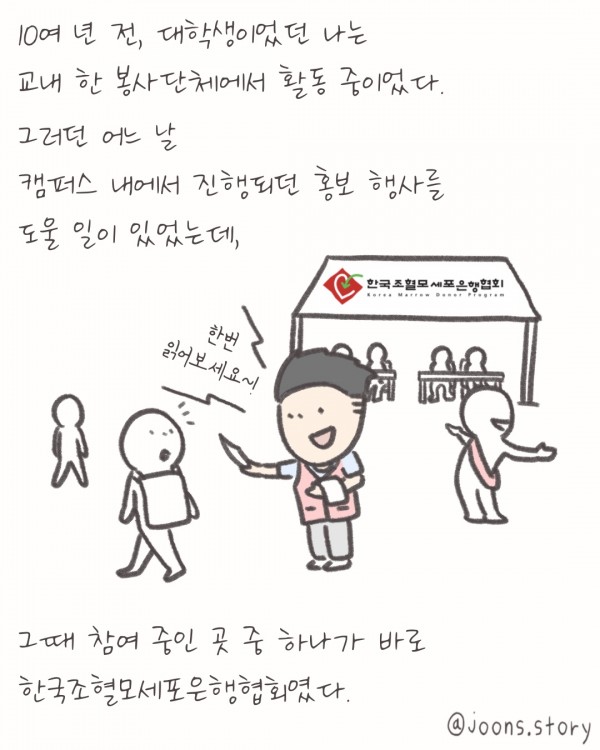 10여 년 전, 대학생이었던 나는
교내 한 봉사단체에서 활동 중이었다.
그러던 어느 날
캠퍼스 내에서 진행되던 홍보 행사를
도울 일이 있었는데,
한국조혈모세포은행협회
Korea Marrow Donor Program
한번
읽어보세요~!
그때 참여 중인 곳 중 하나가 바로
한국조혈모세포은행협회였다.
@joons.story